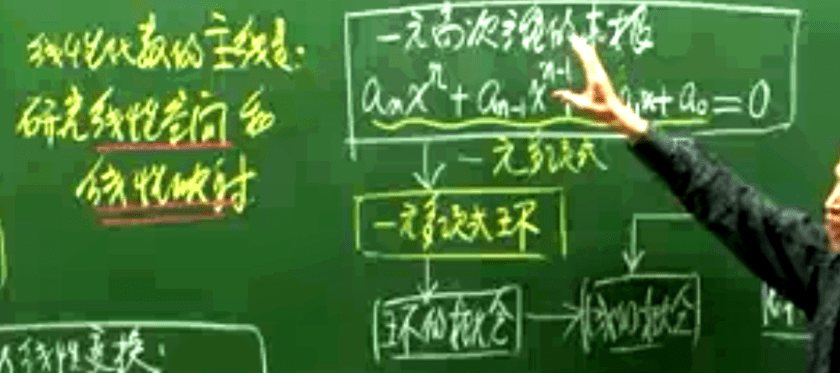 线性代数的主线是:
研究线性空间和
线性映射
一元高次方程的求根
aₙxⁿ + aₙ₋₁xⁿ⁻¹ + a₁x + a₀ = 0
一元多项式
一元多项式环
环的概念
域的概念
线性变换: